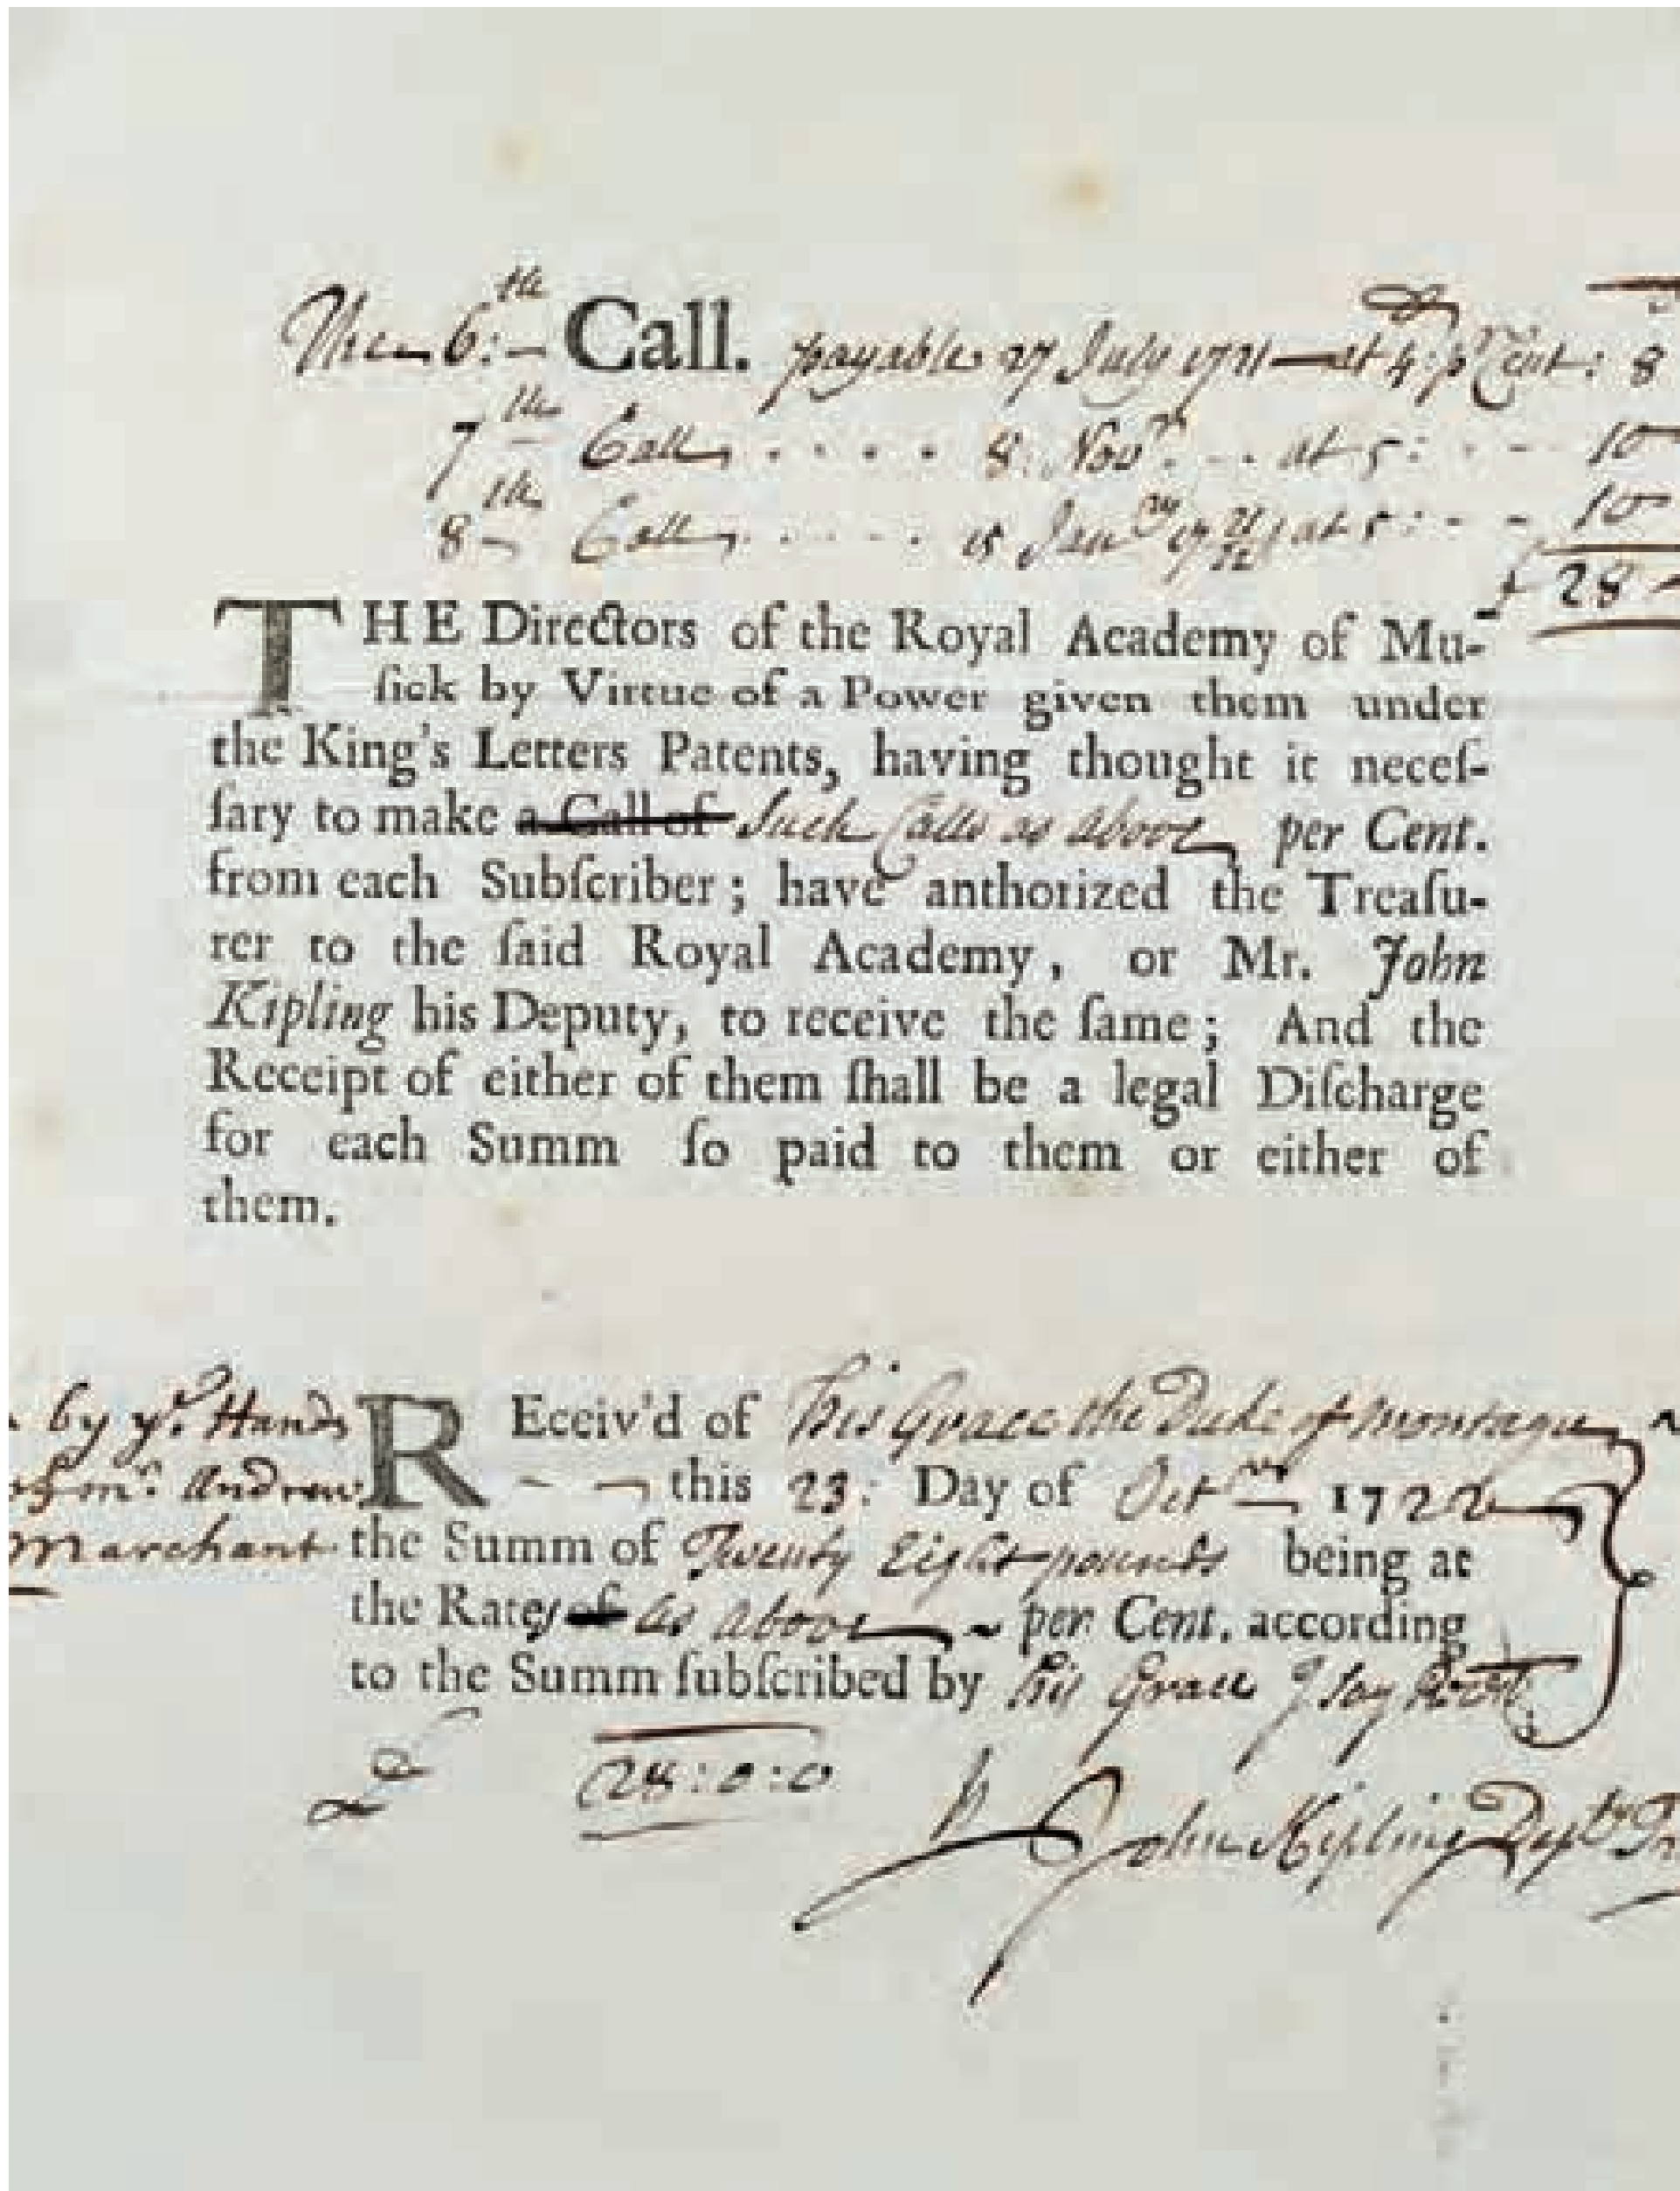 The 6:th Call. payable 27 July 1721 — at 4: pr Cent: 8
7th Call . . . . 8: Novr. - - at 5: - - - 10
8th Call . . . . 15 Janry 17 21/22 at 5: - - - 10
£ 28 -
THE Directors of the Royal Academy of Mu-
ſick by Virtue of a Power given them under
the King's Letters Patents, having thought it neceſ-
ſary to make a Call of Such Calls as above per Cent.
from each Subſcriber; have anthorized the Treaſu-
rer to the ſaid Royal Academy, or Mr. John
Kipling his Deputy, to receive the ſame; And the
Receipt of either of them ſhall be a legal Diſcharge
for each Summ ſo paid to them or either of
them.
by ye Hands
of mr. Andrew
Marchant
REceiv'd of His Grace the Duke of Montague
this 23: Day of Octr 1722
the Summ of Twenty Eight pounds being at
the Rates of as above per Cent. according
to the Summ ſubſcribed by his Grace I say
£ 28:0:0
John Kipling Depty